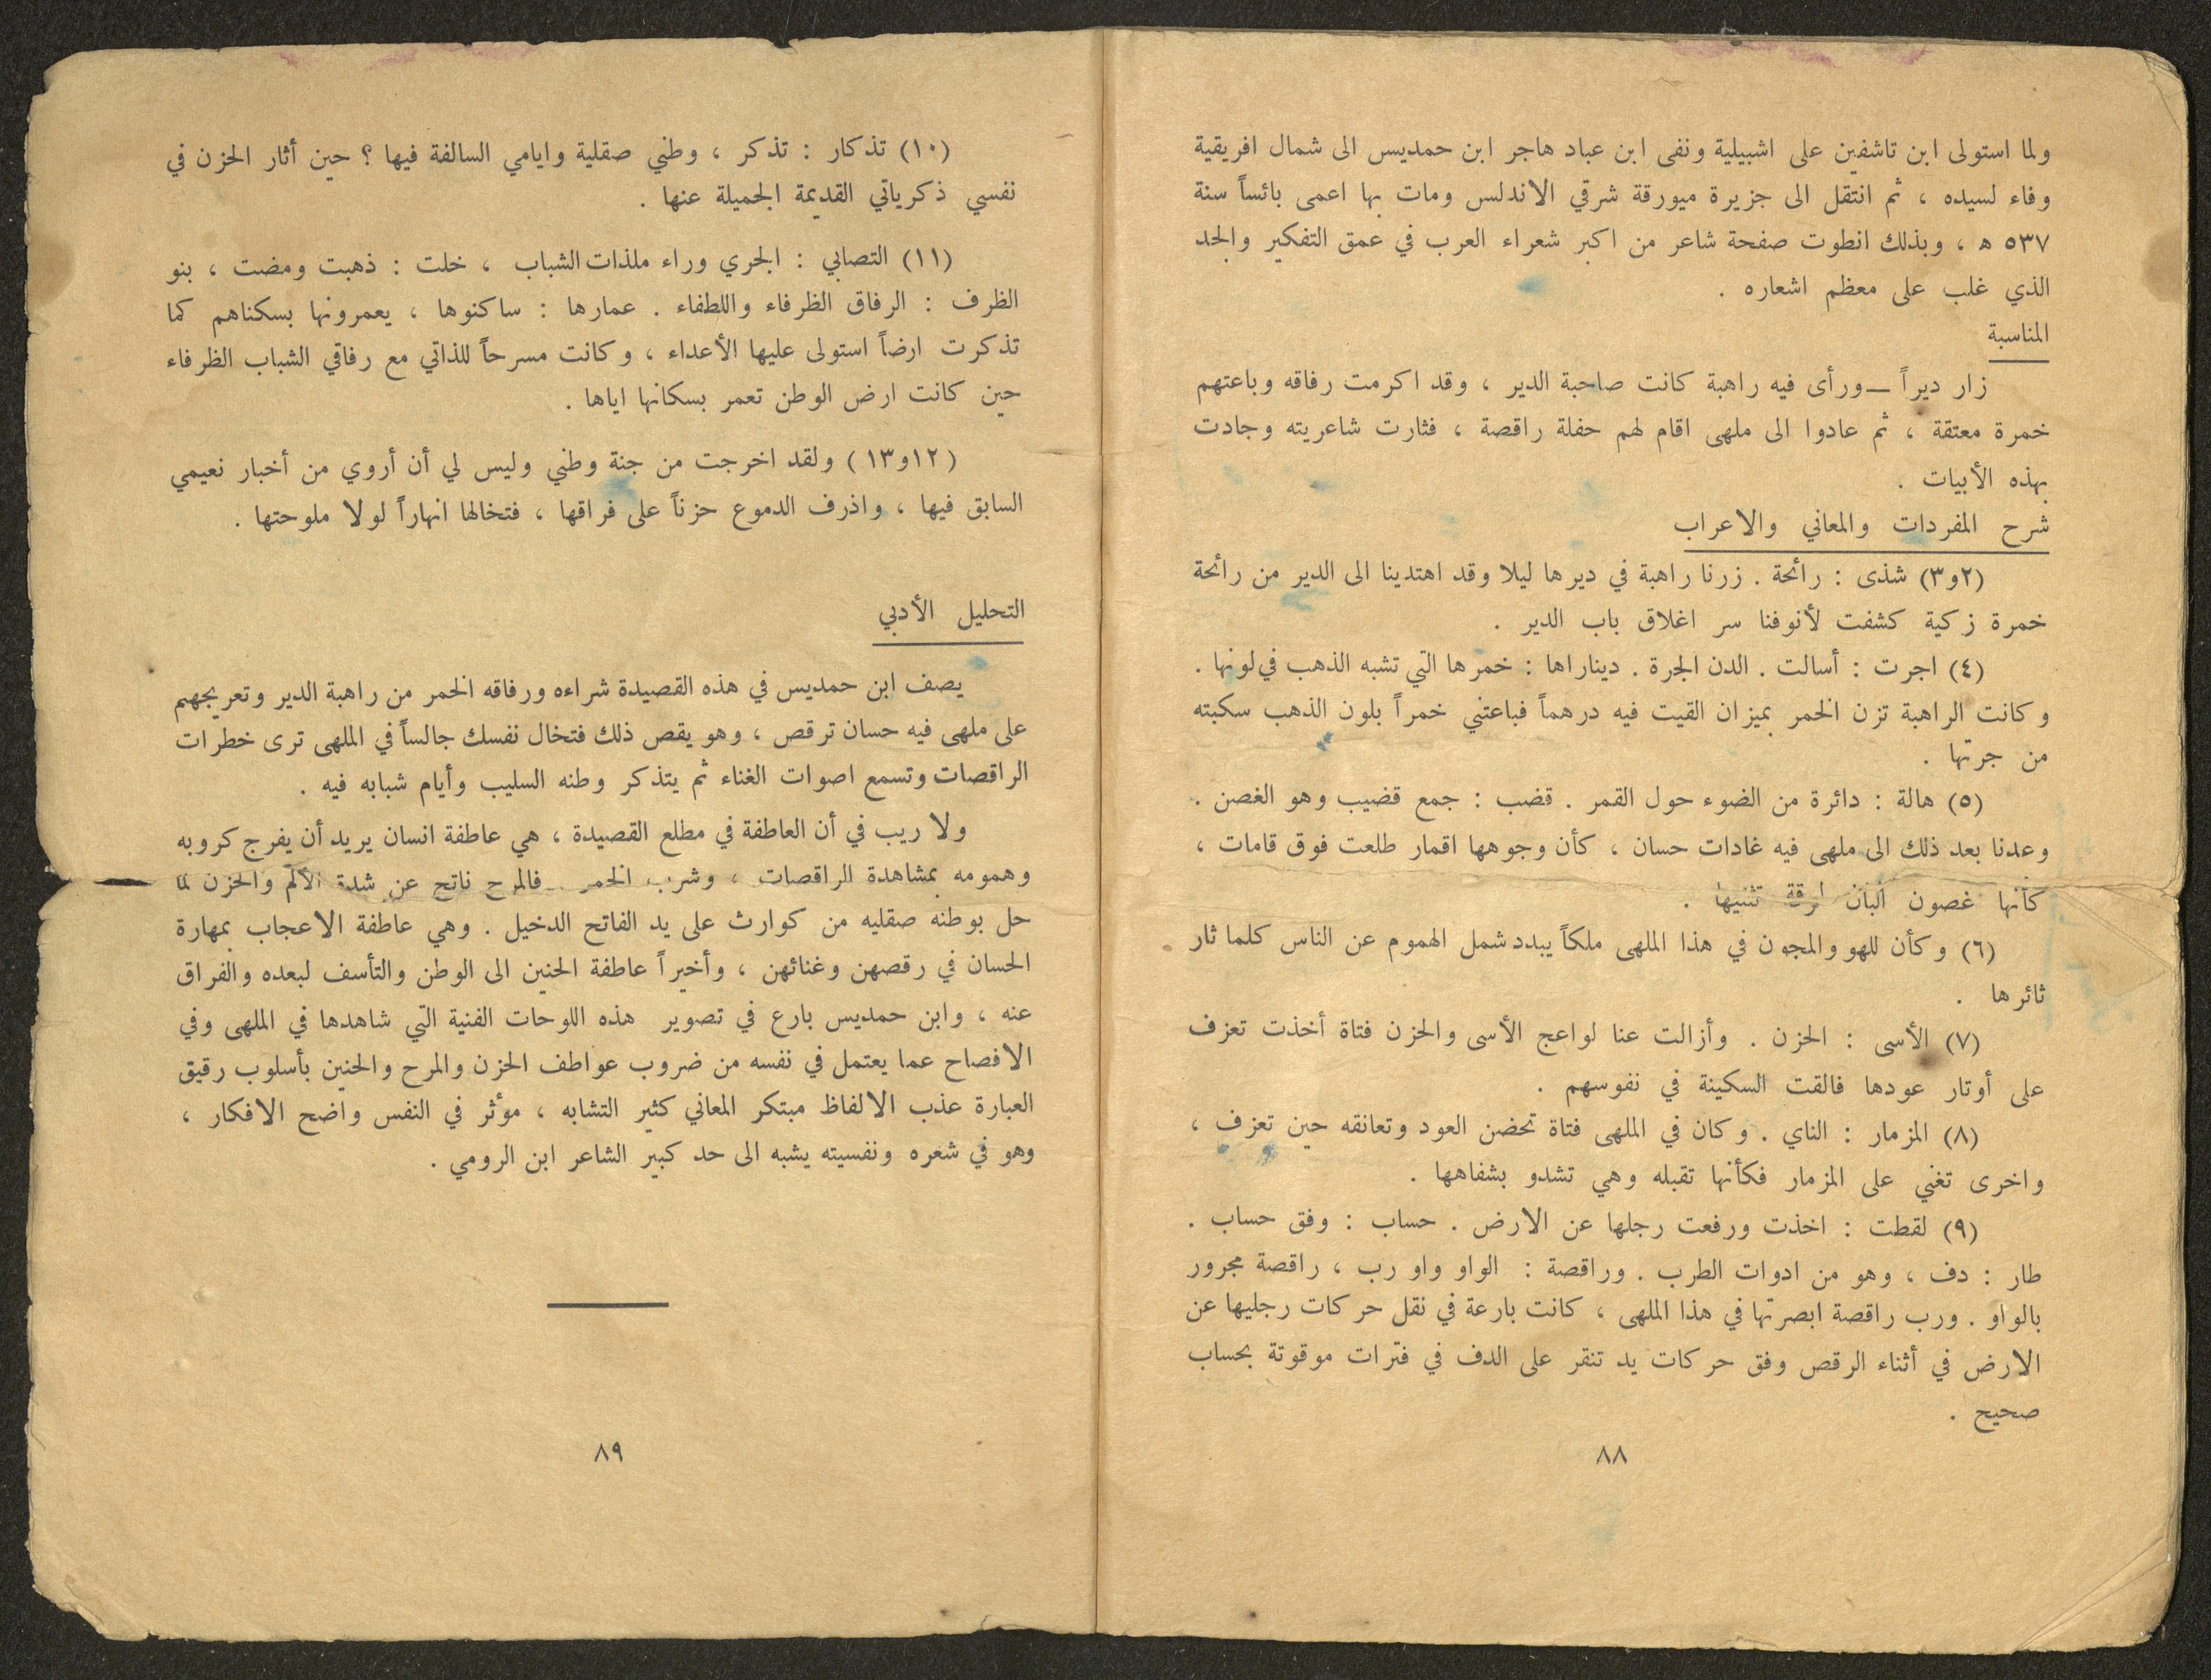 ولما استولى ابن تاشفين على اشبيلية ونفى ابن عباد هاجر ابن حمديس الى شمال افريقية
وفاء لسيده ، ثم انتقل الى جزيرة ميورقة شرقي الاندلس ومات بها اعمى بائساً سنة
٥٣٧ ه ، وبذلك انطوت صفحة شاعر من اكبر شعراء العرب في عمق التفكير والجد
الذي غلب على معظم اشعاره .
المناسبة
زار ديراً — ورأى فيه راهبة كانت صاحبة الدير ، وقد اكرمت رفاقه وباعتهم
خمرة معتقة ، ثم عادوا الى ملهى اقام لهم حفلة راقصة ، فثارت شاعريته وجادت
بهذه الأبيات .
شرح المفردات والمعاني والاعراب
(٢و٣) شذى : رائحة . زرنا راهبة في ديرها ليلا وقد اهتدينا الى الدير من رائحة
خمرة زكية كشفت لأنوفنا سر اغلاق باب الدير .
(٤) اجرت : أسالت . الدن الجرة . ديناراها : خمرها التي تشبه الذهب في لونها .
وكانت الراهبة تزن الخمر بميزان القيت فيه درهماً فباعتني خمراً بلون الذهب سكبته
من جرتها .
(٥) هالة : دائرة من الضوء حول القمر . قضب : جمع قضيب وهو الغصن .
وعدنا بعد ذلك الى ملهى فيه غادات حسان ، كأن وجوهها اقمار طلعت فوق قامات ،
كأنها غصون البان لرقة تثنيها .
(٦) وكأن للهو والمجون في هذا الملهى ملكاً يبدد شمل الهموم عن الناس كلما ثار
ثائرها .
(٧) الأسى : الحزن . وأزالت عنا لواعج الأسى والحزن فتاة أخذت تعزف
على أوتار عودها فالقت السكينة في نفوسهم .
(٨) المزمار : الناي . وكان في الملهى فتاة تحضن العود وتعانقه حين تعزف ،
واخرى تغني على المزمار فكأنها تقبله وهي تشدو بشفاهها .
(٩) لقطت : اخذت ورفعت رجلها عن الارض . حساب : وفق حساب .
طار : دف ، وهو من ادوات الطرب . وراقصة : الواو واو رب ، راقصة مجرور
بالواو . ورب راقصة ابصرتها في هذا الملهى ، كانت بارعة في نقل حركات رجليها عن
الارض في أثناء الرقص وفق حركات يد تنقر على الدف في فترات موقوتة بحساب
صحيح .
٨٨
(١٠) تذكار : تذكر ، وطني صقلية وايامي السالفة فيها ؟ حين أثار الحزن في
نفسي ذكرياتي القديمة الجميلة عنها .
(١١) التصابي : الجري وراء ملذات الشباب ، خلت : ذهبت ومضت ، بنو
الظرف : الرفاق الظرفاء واللطفاء . عمارها : ساكنوها ، يعمرونها بسكناهم كما
تذكرت ارضاً استولى عليها الأعداء ، وكانت مسرحاً للذاتي مع رفاقي الشباب الظرفاء
حين كانت ارض الوطن تعمر بسكانها اياها .
(١٢و١٣) ولقد اخرجت من جنة وطني وليس لي أن أروي من أخبار نعيمي
السابق فيها ، واذرف الدموع حزناً على فراقها ، فتخالها انهاراً لولا ملوحتها .
التحليل الأدبي
يصف ابن حمديس في هذه القصيدة شراءه ورفاقه الخمر من راهبة الدير وتعريجهم
على ملهى فيه حسان ترقص ، وهو يقص ذلك فتخال نفسك جالساً في الملهى ترى خطرات
الراقصات وتسمع اصوات الغناء ثم يتذكر وطنه السليب وأيام شبابه فيه .
ولا ريب في أن العاطفة في مطلع القصيدة ، هي عاطفة انسان يريد أن يفرج كروبه
وهمومه بمشاهدة الراقصات ، وشرب الخمر . فالمرح ناتج عن شدة الألم والحزن لما
حل بوطنه صقليه من كوارث على يد الفاتح الدخيل . وهي عاطفة الاعجاب بمهارة
الحسان في رقصهن وغنائهن ، وأخيراً عاطفة الحنين الى الوطن والتأسف لبعده والفراق
عنه ، وابن حمديس بارع في تصوير هذه اللوحات الفنية التي شاهدها في الملهى وفي
الافصاح عما يعتمل في نفسه من ضروب عواطف الحزن والمرح والحنين بأسلوب رقيق
العبارة عذب الالفاظ مبتكر المعاني كثير التشابه ، مؤثر في النفس واضح الافكار ،
وهو في شعره ونفسيته يشبه الى حد كبير الشاعر ابن الرومي .
٨٩